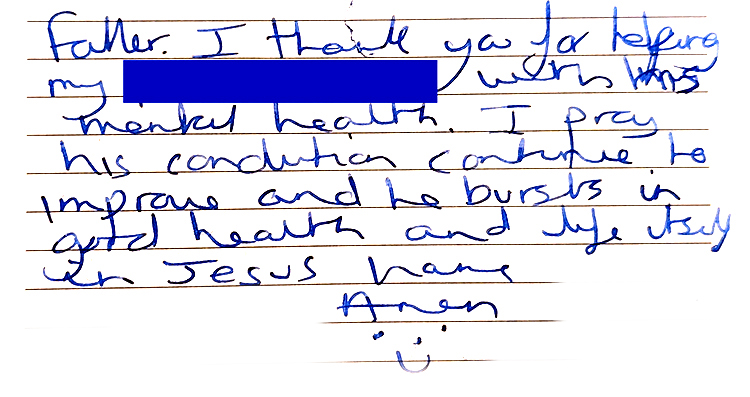 Father. I thank you for helping
my with his
mental health. I pray
his condition continue to
improve and he bursts in
good health and life itself
in Jesus name
Amen